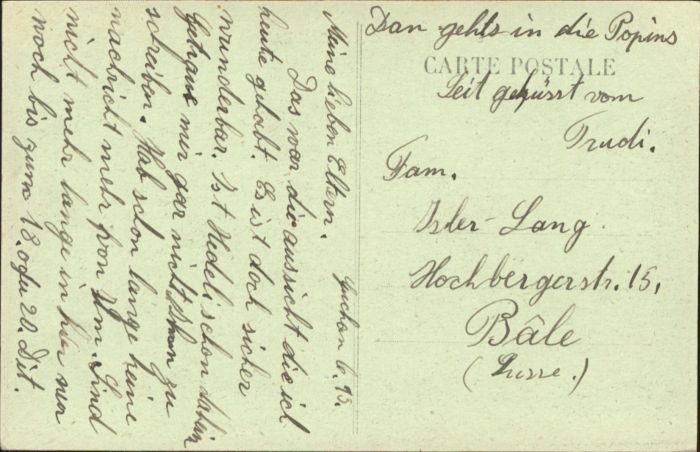 Meine lieben Eltern.
Das war die aussicht die ich
heute gehabt. Es ist doch sicher
wunderbar. Ist Hedeli schon dahin
Getraue mir gar nicht zu
schreiben. Hab schon lange keine
nachricht mehr von Ihm. Sind
nicht mehr lange in hier nur
noch bis zum 18. oder 20. Dit.
Dan gehts in die
CARTE POSTALE
Seit geküsst vom
Trudi.
Fam.
Isler-Lang
Hochbergerstr. 15,
Bâle
(Suisse.)